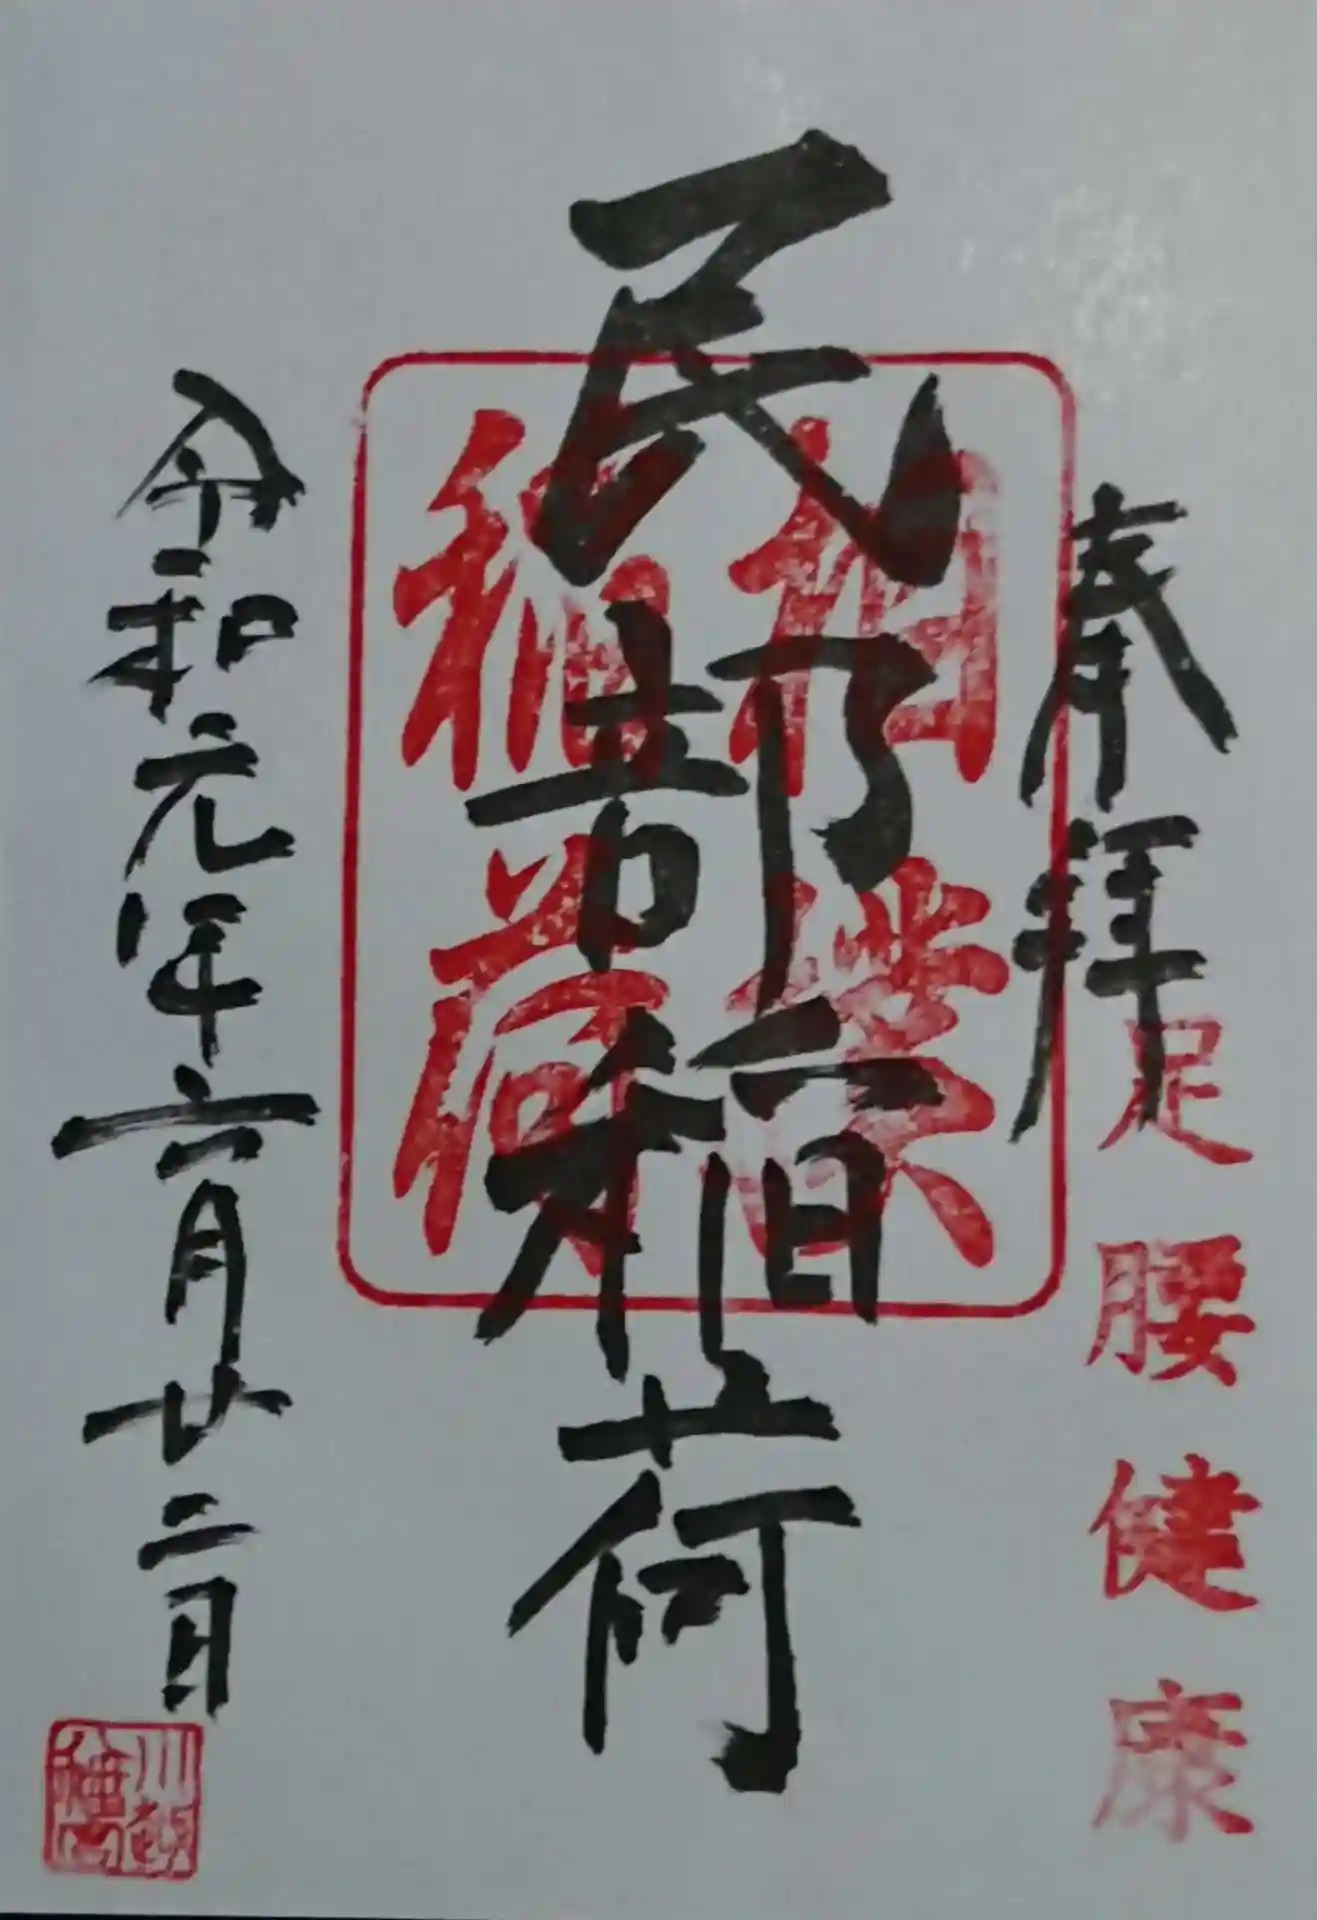 奉拝
足腰健康
民部稲荷
相撲
稲荷
令和元年六月廿二日